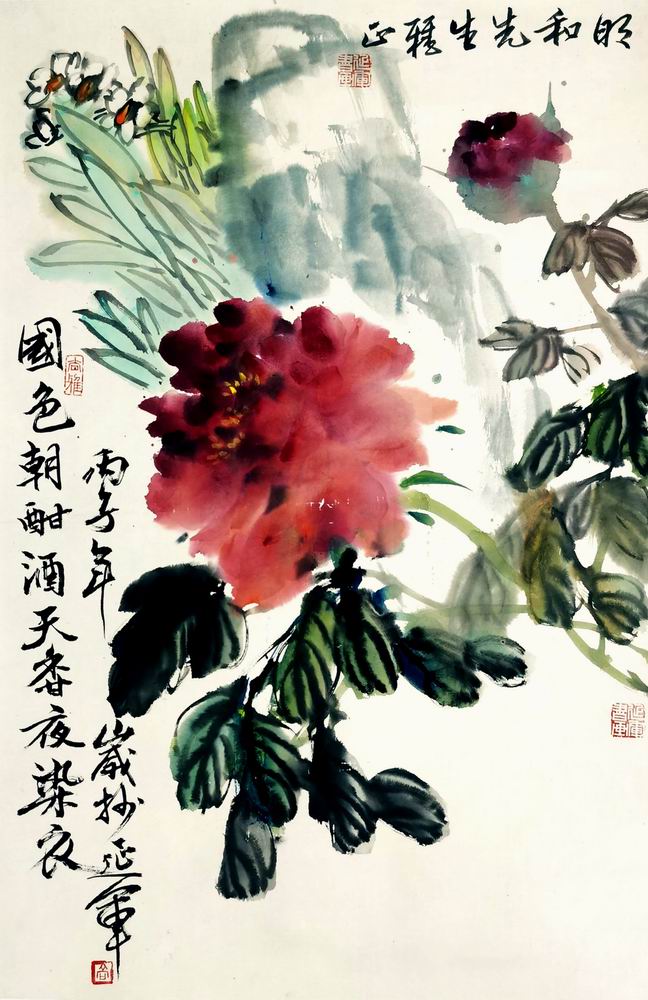 明和先生雅正
國色朝酣酒天香夜染衣
丙子年歲抄延軍